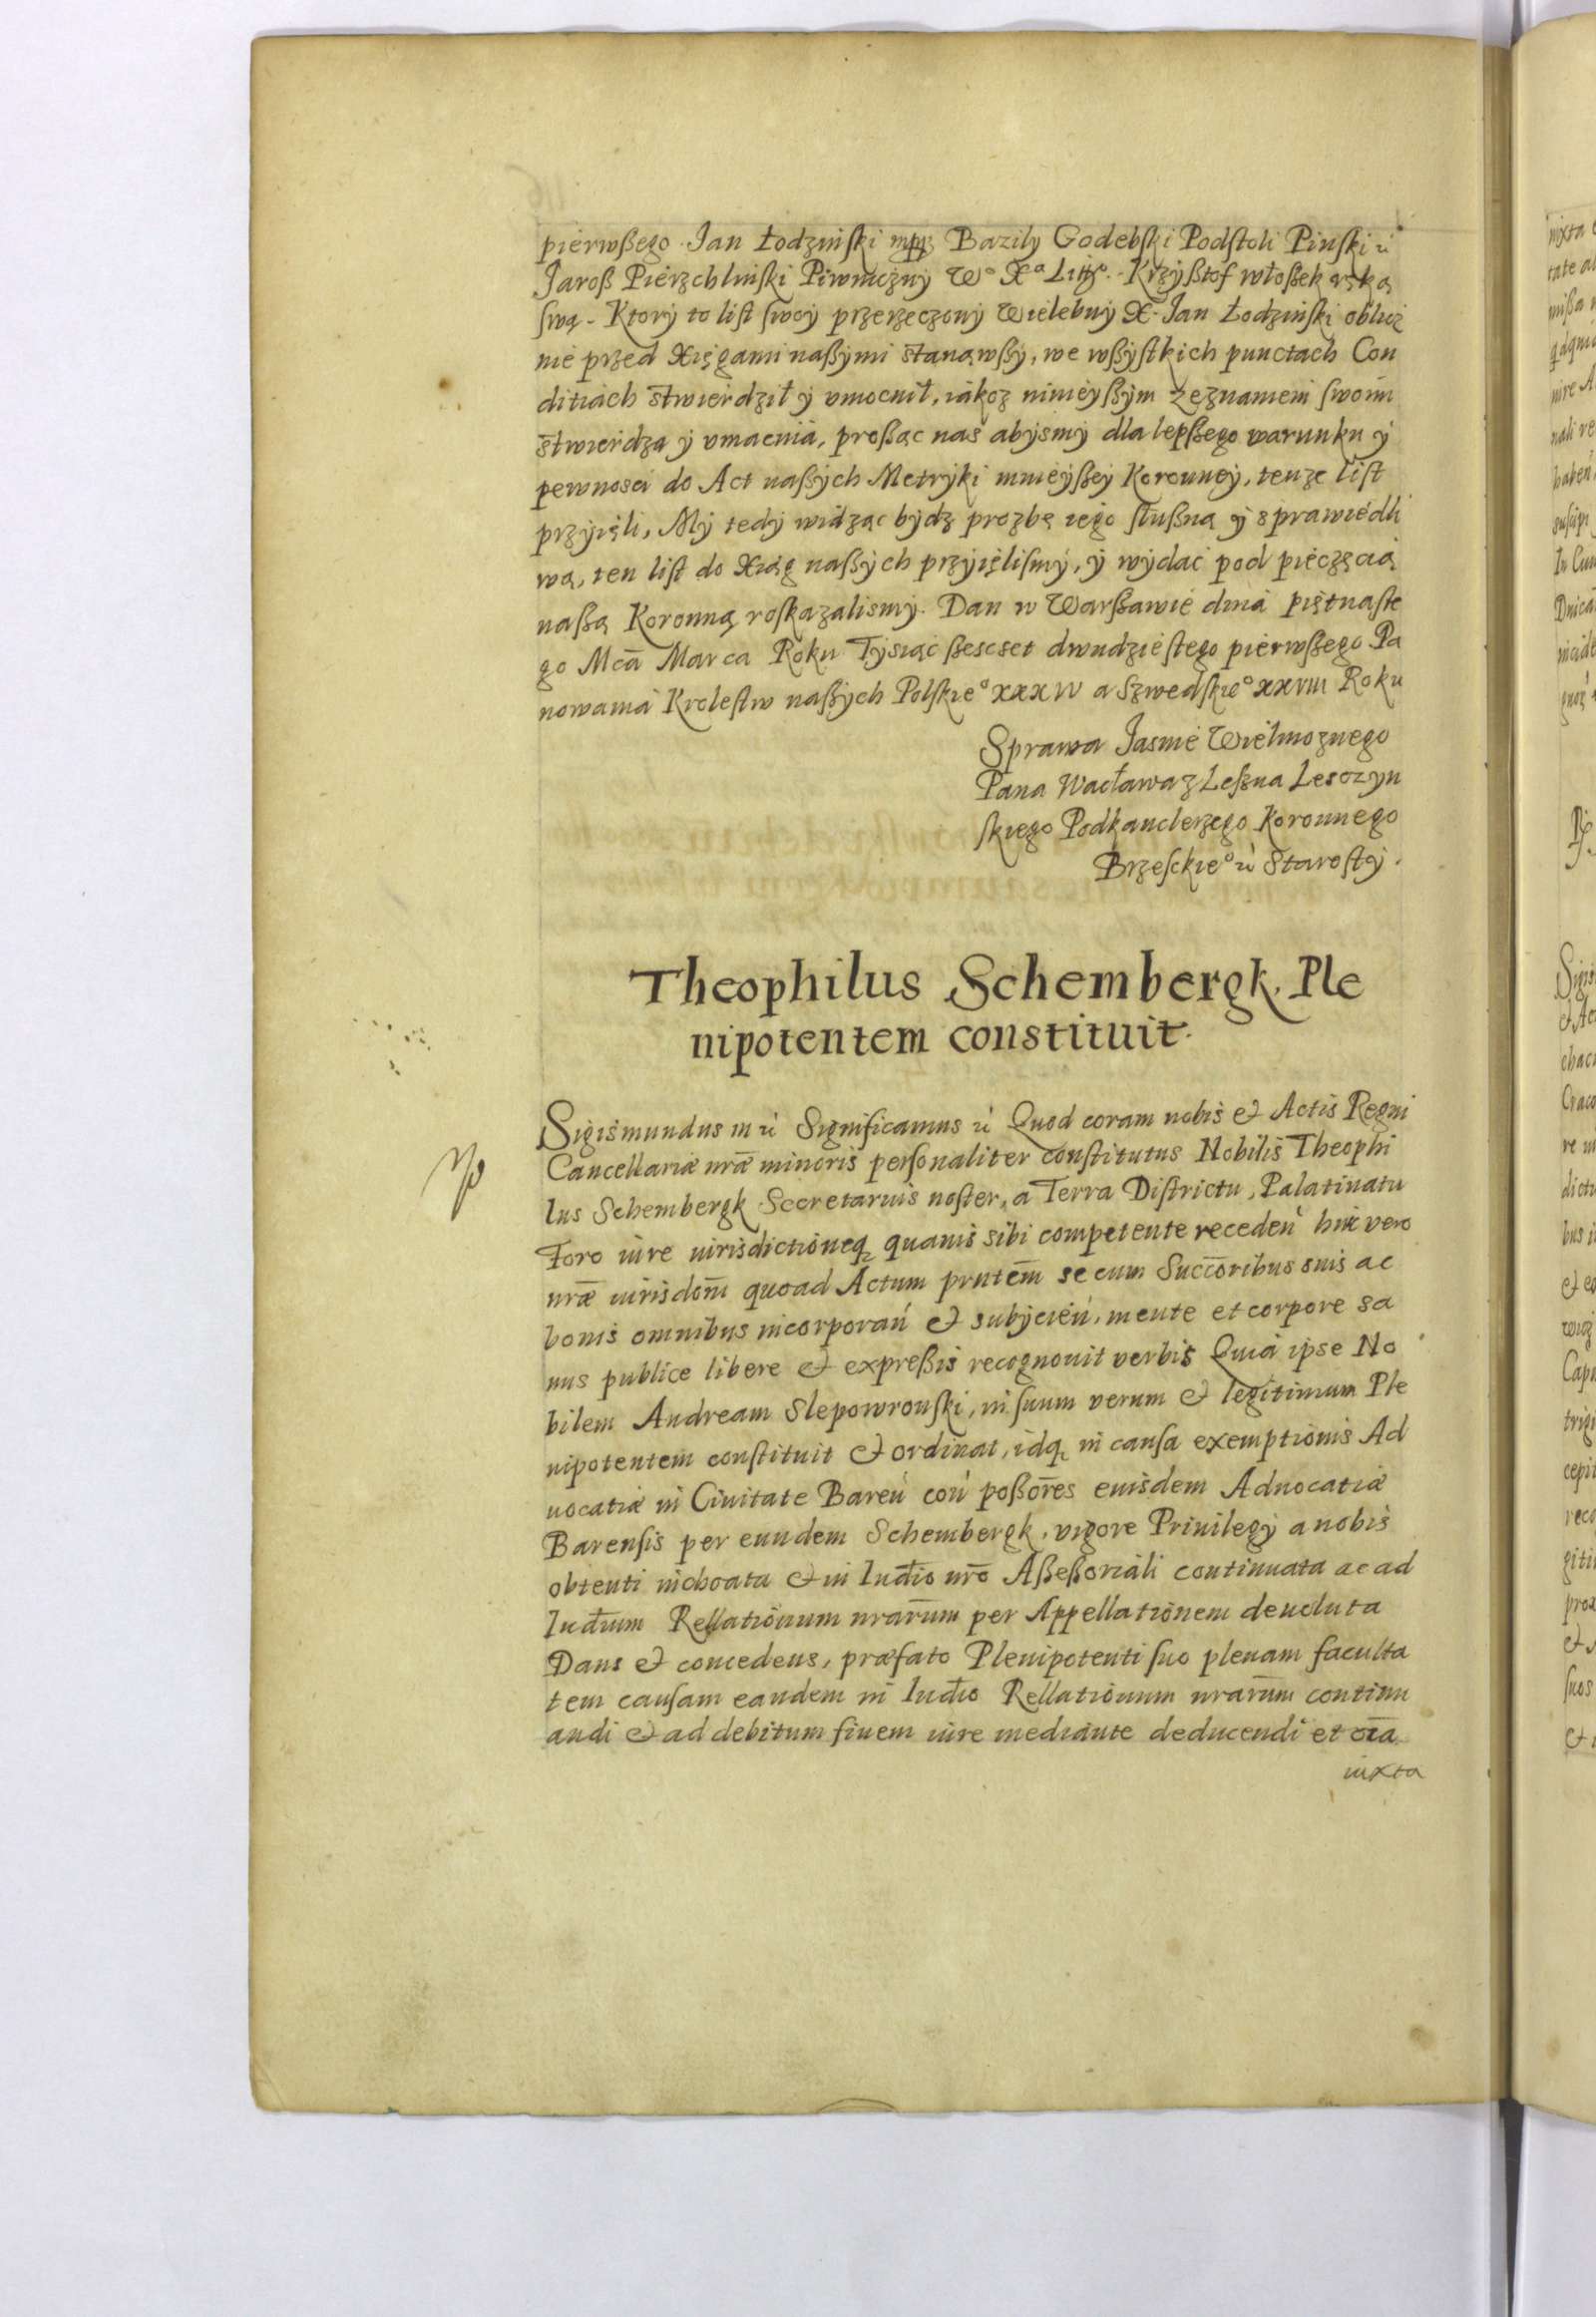 pierwßego. Jan Łodzinſki mpp Bazily Godebſki Podſtoli Pinſki
Jaroß Pierzchlinſki Piwniczny Wº Xª Litgº. Krzyßtof włoßek ręką
ſwą. Ktory to liſt ſwoy przerzeczony Wielebny X. Jan Łodzinſki oblicz
nie przed Xięgami naßymi stanąwßy, we wßyſtkich punctach Con
ditiach stwierdził y vmocnił, iakoz ninieyßym zeznaniem ſwoim
stwierdza y vmacnia, proßąc nas abysmy dla lepßego warunku y
pewnosci do Act naßych Metryki mnieyßey Koronney, tenze liſt
przyięli, My tedy widząc bydz prozbę iego ſłußną y sprawiedli
wą, ten liſt do Xiąg naßych przyięliſmy, y wydać pod pieczęcią
naßą Koronną roſkazalismy. Dan w Warßawie dnia piętnaſte
go Mcā Marca Roku Tysiąc ßescset dwudzieſtego pierwßego Pa
nowania Kroleſtw naßych Polſkieº xxxiv a Szwedſkieº xxviii Roku
Sprawa Jasnie Wielmoznego
Pana Wacława z Leßna Lesczyn
ſkiego Podkanclerzego Koronnego
Brzeſckieº Staroſty.
Theophilus Schembergk. Ple
nipotentem constituit.
Sigismundus III Significamus Quod coram nobis et Actis Regni
Cancellariæ nrǣ minoris perſonaliter conſtitutus Nobilis Theophi
lus Schembergk Secretarius noſter, a Terra Diſtrictu, Palatinatu
Foro iure iurisdictioneq₂ quamis sibi competente receden̄ huic vero
nrǣ iurisdom̄ quoad Actum pnt̄em se cum Succ̄oribus suis ac
bonis omnibus incorporan̄ et subycien̄, mente et corpore sa
nus publice libere et expreßis recognouit verbis Quia ipse No
bilem Andream Slepowronſki, in ſuum verum et legitimum Ple
nipotentem conſtituit et ordinat, idq₂ in cauſa exemptionis Ad
uocatiæ in Ciuitate Baren̄ con̄ poßor̄es eiusdem Aduocatiæ
Barenſis per eundem Schembergk, vigore Priuilegy a nobis
obtenti inchoata et in Iud̄io nr̄o Aßeßoriali continuata ac ad
Iud̄ium Rellationum nrarūm per Appellationem deuoluta
Dans et concedens, præfato Plenipotenti ſuo plenam faculta
tem cauſam eandem in Iud̄io Rellationum nrarūm continu
andi et ad debitum finem iure mediante deducendi et oīa
iuxta